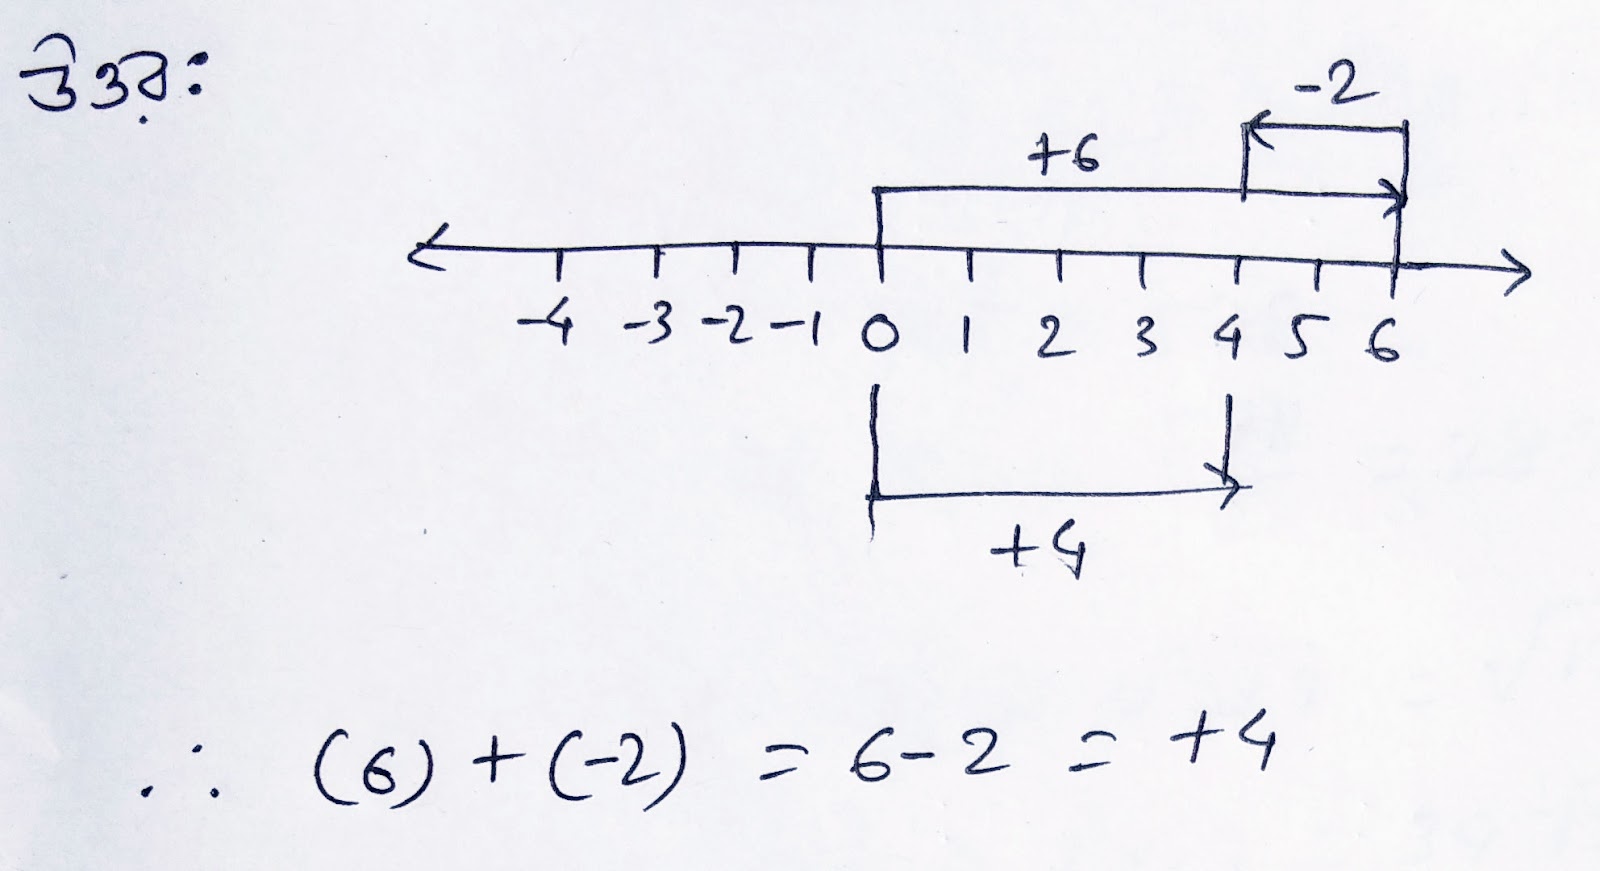 উত্তর:
-2
+6
-4 -3 -2 -1 0 1 2 3 4 5 6
+4
∴ (6) + (-2) = 6-2 = +4